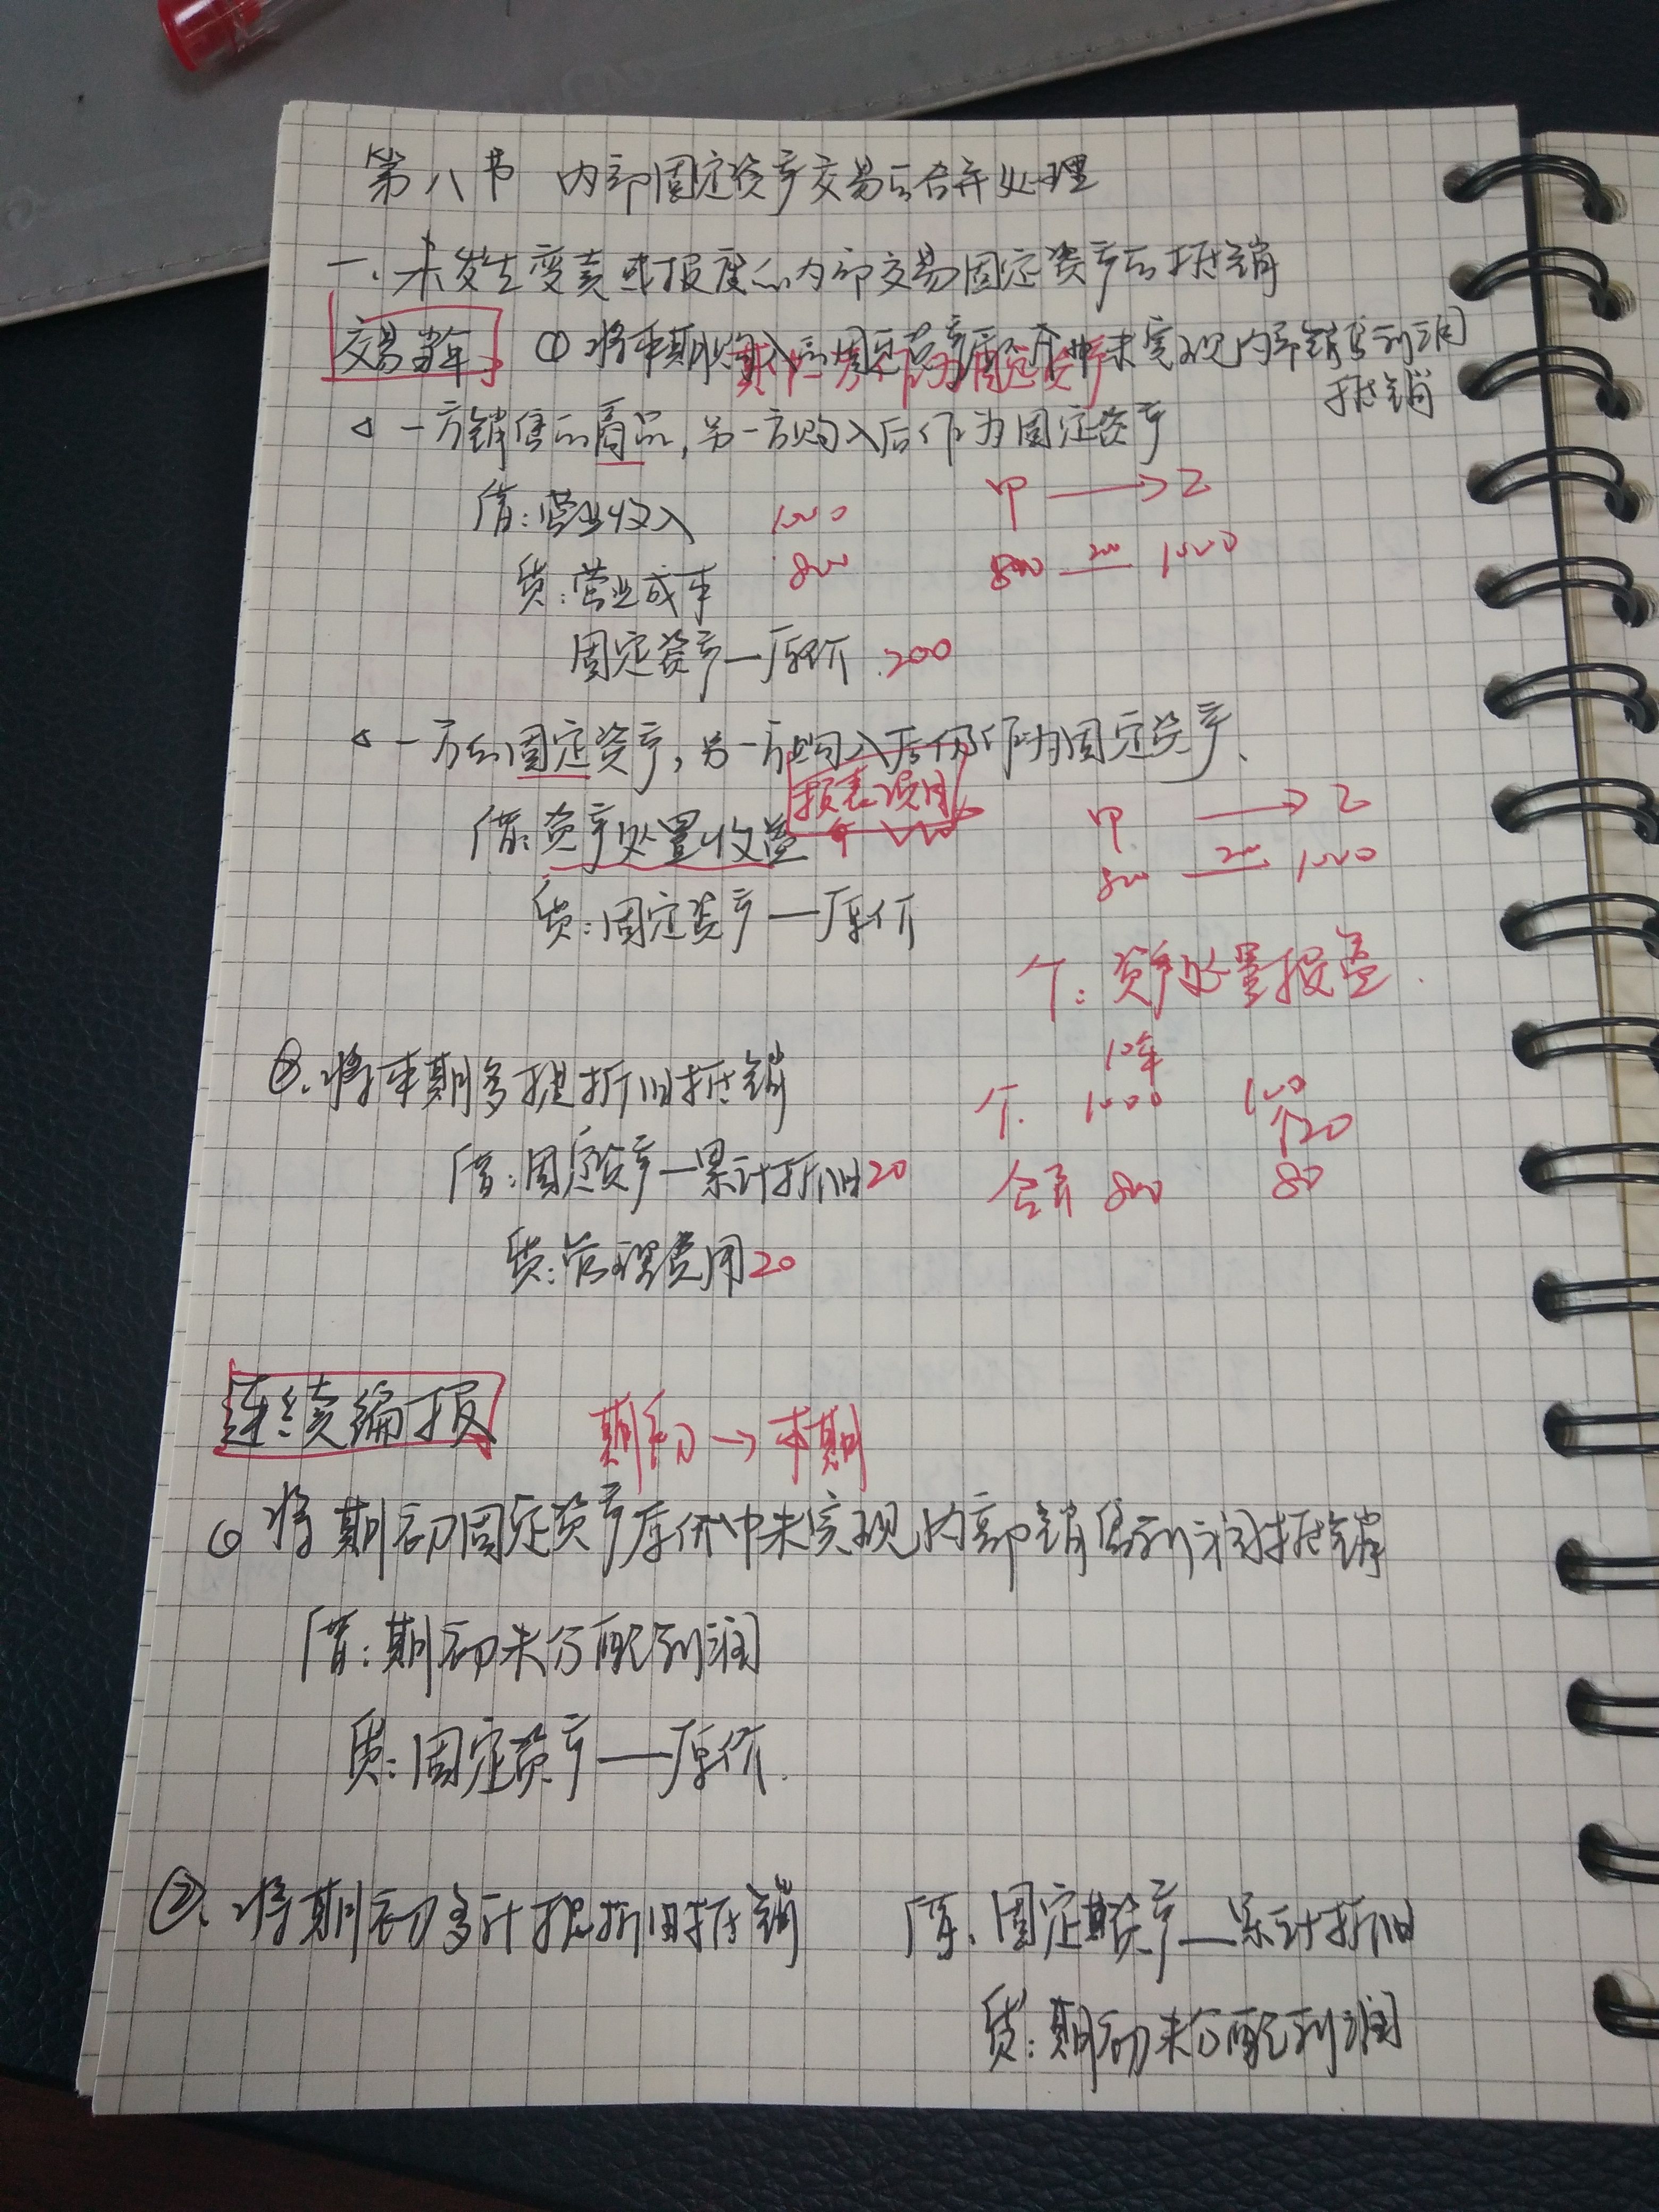 第八节 内部固定资产交易的合并处理
一、未发生变卖或报废的内部交易固定资产的抵销
交易当年 ① 将本期购入的固定资产原价中未实现内部销售利润
抵销
一方销售的商品,另一方购入后作为固定资产
借:营业收入 1000 甲 → 乙
贷:营业成本 800 800 200 1000
固定资产—原价 200
一方的固定资产,另一方购入后仍作为固定资产、
报表项目
借:资产处置收益 甲 → 乙
800 200 1000
贷:固定资产—原价
个:资产处置损益.
10年
②、将本期多提折旧抵销 个. 1000 100
↑20
借:固定资产—累计折旧20 合并 800 80
贷:管理费用20
连续编报 期初→本期
① 将期初固定资产原价中未实现内部销售利润抵销
借:期初未分配利润
贷:固定资产——原价.
②、将期初多计提折旧抵销 借、固定资产—累计折旧
贷:期初未分配利润